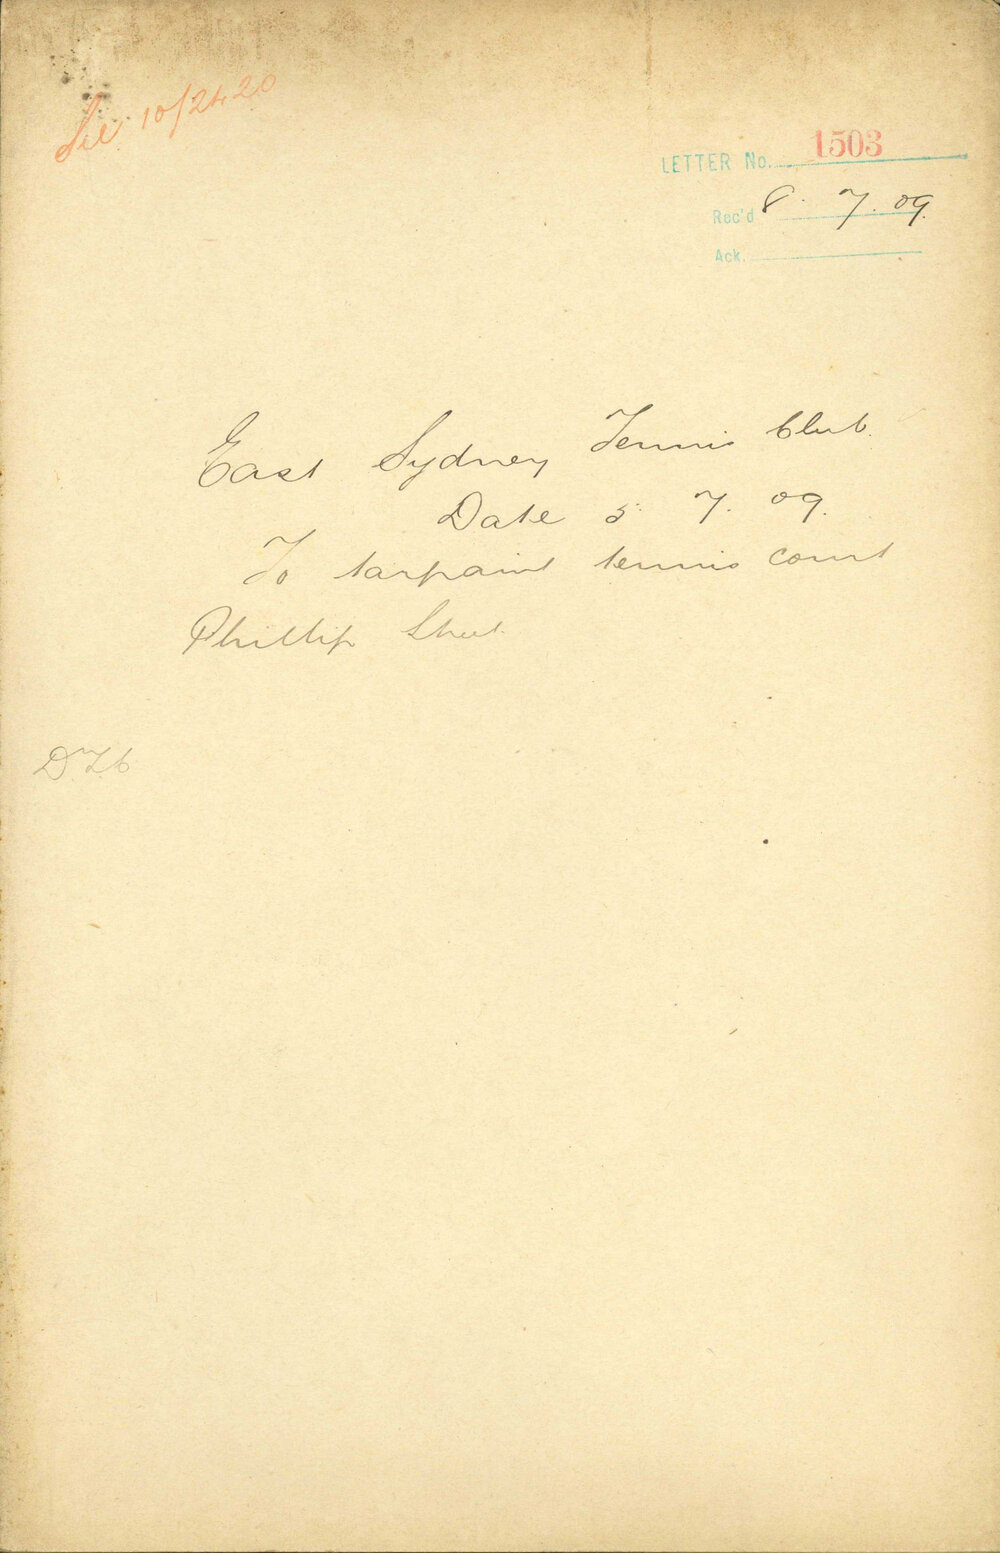 See 10/2420
LETTER No. 1503
Rec'd 8. 7. 09.
Ack.
East Sydney Tennis Club.
Date 5. 7. 09.
To tarpaint tennis court
Phillip Street